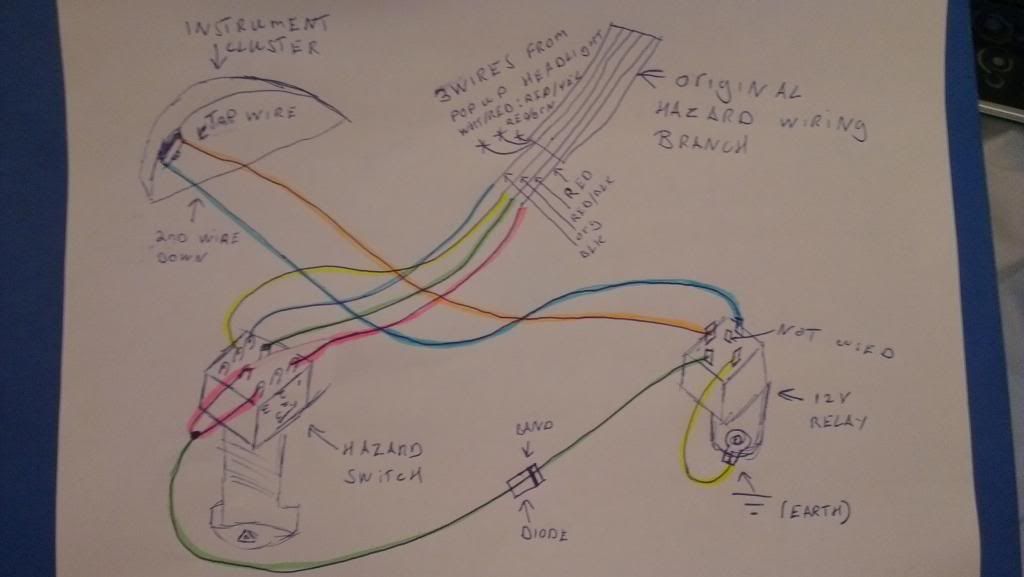 INSTRUMENT
CLUSTER
TOP WIRE
2ND WIRE
DOWN
3 WIRES FROM
POP UP HEADLIGHT
WHT/RED: RED/YEL
RED/GRN
ORIGINAL
HAZARD WIRING
BRANCH
RED
RED/BLK
ORG
BLK
NOT WIRED
12V
RELAY
HAZARD
SWITCH
BAND
DIODE
(EARTH)